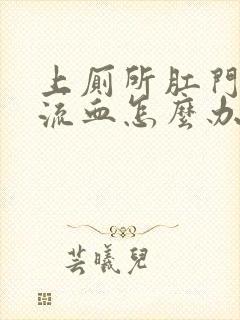 上厠所肛門
流血怎麼办
芸曦兒